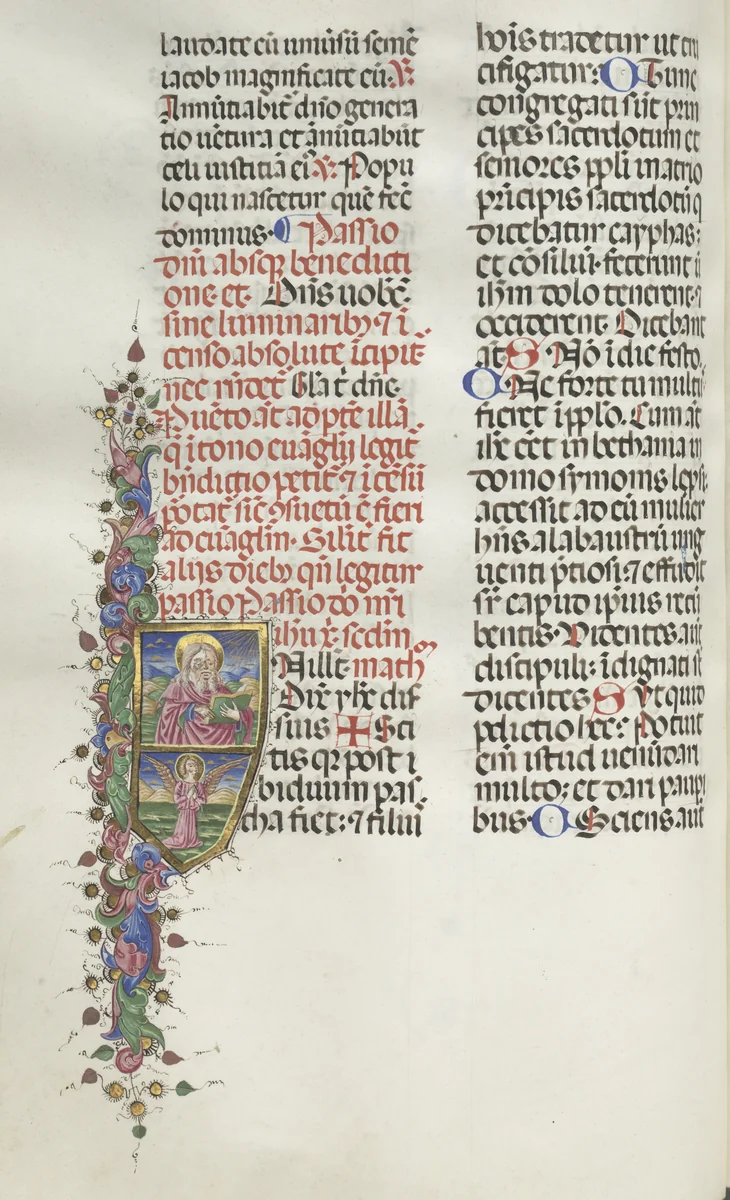 laudate eū univ̄sū semē
iacob magnificate eū. ℣.
Annūtiabit̄ dn̄o genera
tio uētura et ānūtiabūt
celi iustitiā ei᷒ ℣. Popu
lo qui nascetur quē fec̄
dominus. Passio
dn̄i absqꝫ benedicti
one. et. Dn̄s uobc̄.
sine luminaribꝫ ⁊ ī
censo absolute īcipit̄
nec rn̄det̄ Gl̄a t̄ dn̄e.
Puēto at̄ ad ptē illā
q̄ ī tono euāglij legit̄
bn̄dictio petit̄ ⁊ īcēsū
portat̄ sic̄ ꝯsuetū ē fieri
ad euāgl̄m. Silit̄ fit
alijs diebꝫ qn̄ legitur
passio Passio dō nr̄i
ihū xp̄. sedm̄
Nillt̄ math
Dix̄ yhc̄ dis
suis ✠ Sci
tis qꝛ post i
biduum pas
cha fiet: ⁊ filiu᷒
hoīs tradetur ut cru
cifigatur: Tunc
congregati sūt prin
cipes sacerdotum et
seniores pp̄li in atrio
prīcipis sacerdotū q
dicebatur cayphas:
et cōsiliū fecerunt ū
ihm̄ dolo tenerent. ⁊
occiderent. Dicebant
at̄ S Nō ī die festo.
Ne forte tumult᷒
fieret ī pp̄lo. Cum at̄
ihc̄ eēt in bethania in
domo symonis lepsi
accessit ad eū mulier
hn̄s alabaustrū ung
uenti p̄tiosi. ⁊ effudit
sr̄ caput ip̄ius recū
bentis. Videntes aut̄
discipuli: īdignati st̄
dicentes S Ut quid
pditio hec: Potuit
eīn istud uenūdari
multo: et dari paupi
bus. Sciens aut̄